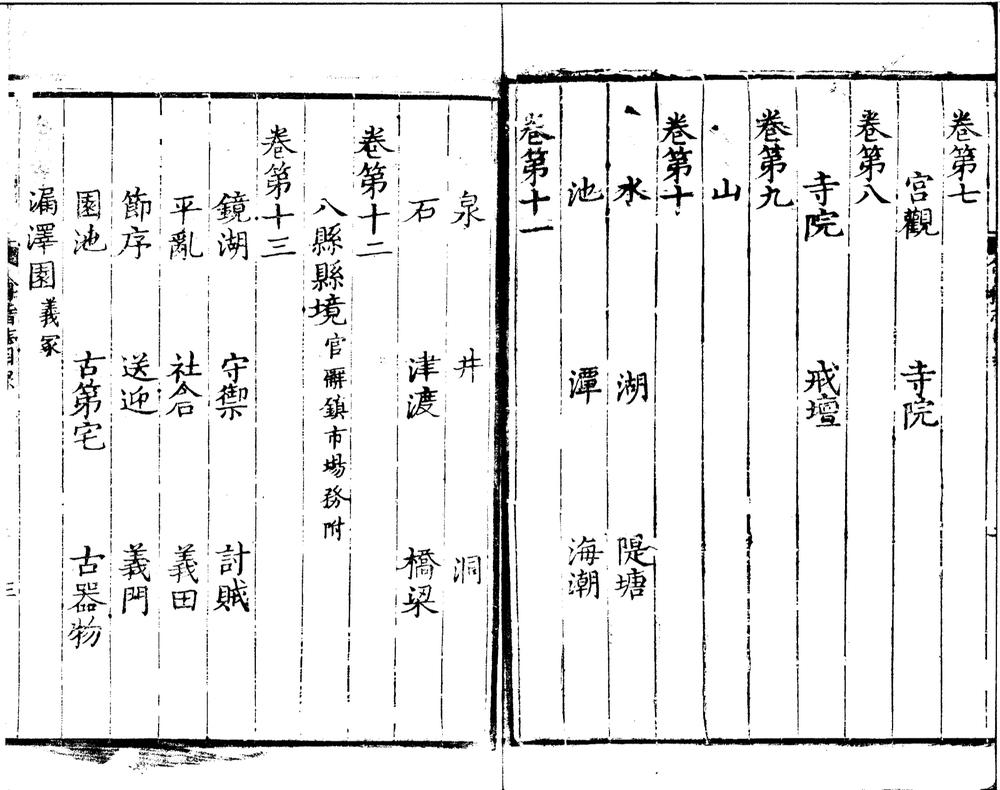 卷第七
宮觀 寺院
卷第八
寺院 戒壇
卷第九
山
卷第十
水 湖 隄塘
池 潭 海潮
卷第十一
泉 井 洞
石 津渡 橋梁
卷第十二
八縣縣境官廨鎮市場務附
卷第十三
鏡湖 守禦 計賊
平亂 社合 義田
節序 送迎 義門
園池 古第宅 古器物
漏澤園義冢